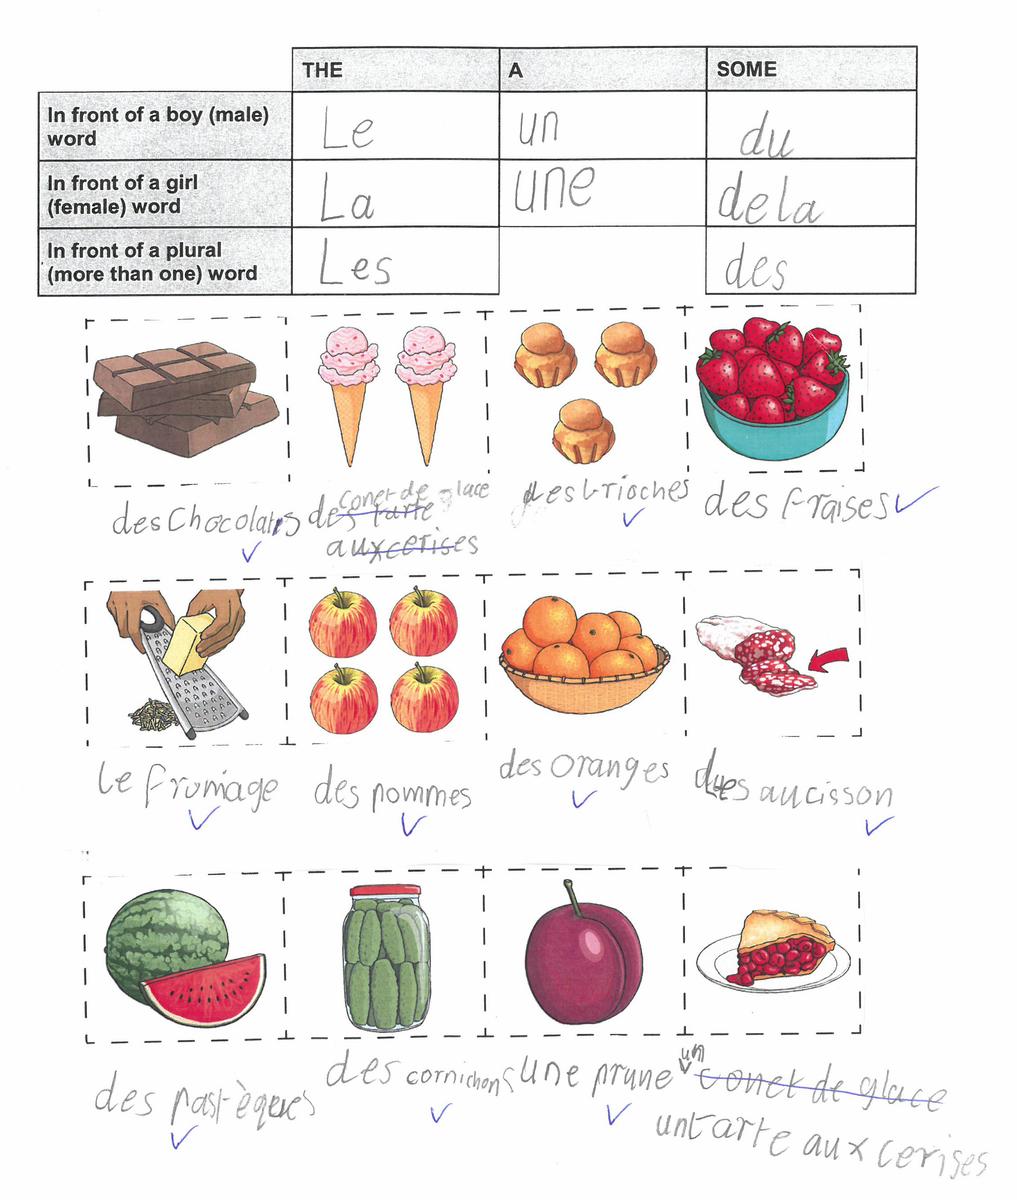 THE A SOME
In front of a boy (male) word Le un du
In front of a girl (female) word La une dela
In front of a plural (more than one) word Les des
des Chocolats des conet de glace des brioches des fraises
tarte
aux cerises
le fromage des pommes des oranges saucisson
des pastèques des cornichons une prune un conet de glace
un tarte aux cerises